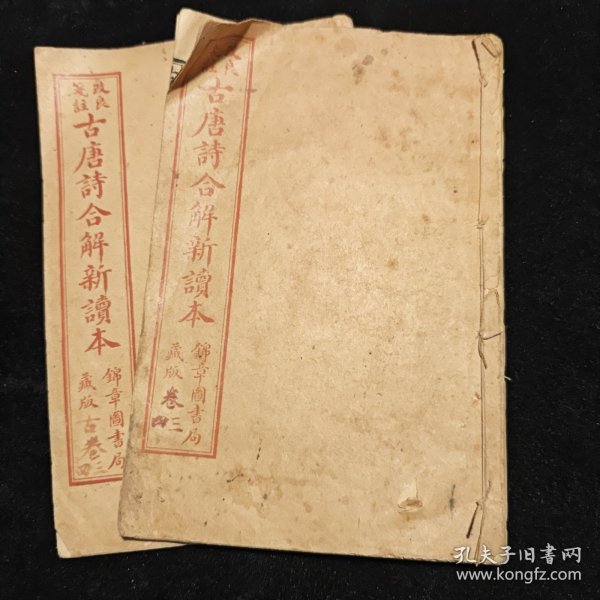 改良
箋註
古唐詩合解新讀本
錦章圖書局
藏版
古卷三
四
良
古唐詩合解新讀本
錦章圖書局
藏版
卷三
四
孔夫子旧书网
www.kongfz.com